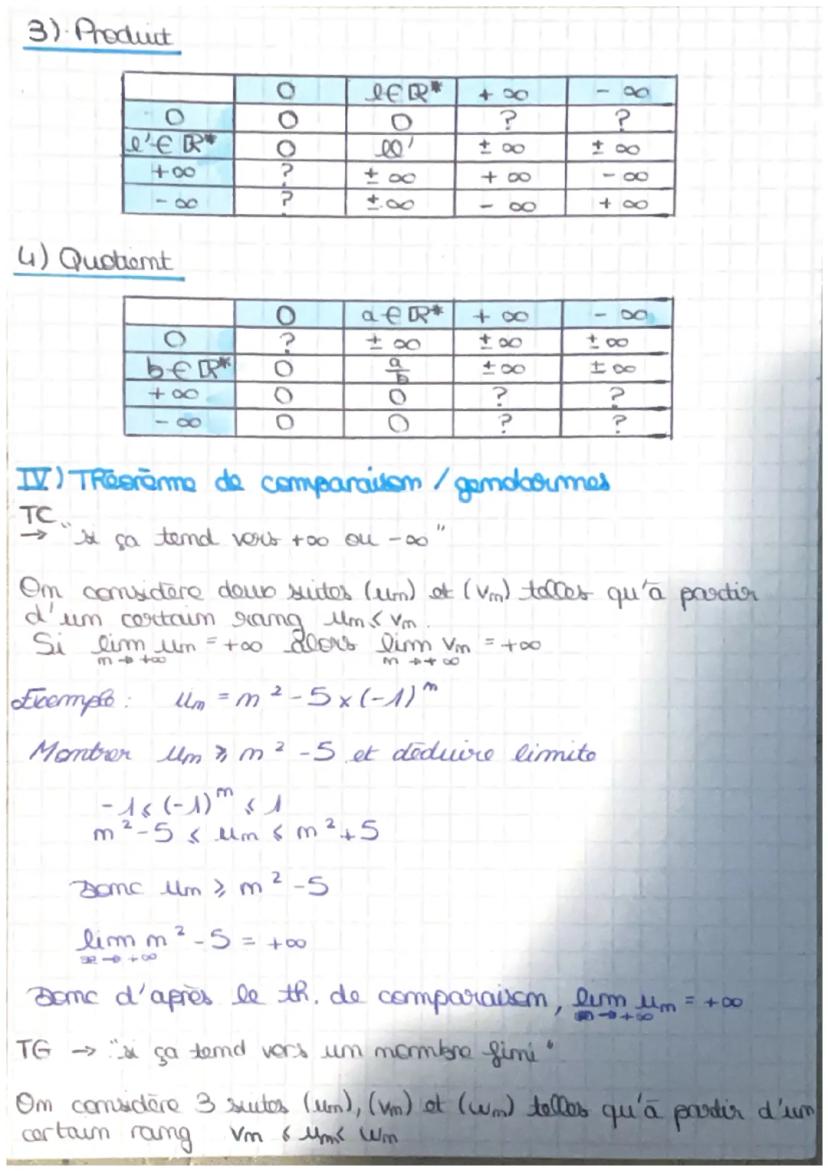 3) Produit
0 | l∈ℝ* | +∞ | -∞
0 | 0 | 0 | ? | ?
l'∈ℝ* | 0 | ll' | ±∞ | ±∞
+∞ | ? | ±∞ | +∞ | -∞
-∞ | ? | ±∞ | -∞ | +∞
4) Quotient
0 | a∈ℝ* | +∞ | -∞
0 | ? | ±∞ | ±∞ | ±∞
b∈ℝ* | 0 | a/b | ±∞ | ±∞
+∞ | 0 | 0 | ? | ?
-∞ | 0 | 0 | ? | ?
IV) Théorème de comparaison / gendarmes
TC
→ "si ça tend vers +∞ ou -∞"
On considère deux suites (un) et (vn) telles qu'à partir
d'un certain rang un ≤ vn.
Si lim un = +∞ alors lim vn = +∞
n→+∞ n→+∞
Exemple : un = n² - 5 × (-1)ⁿ
Montrer un ≥ n² - 5 et déduire limite
-1 ≤ (-1)ⁿ ≤ 1
n² - 5 ≤ un ≤ n² + 5
Donc un ≥ n² - 5
lim n² - 5 = +∞
x→+∞
Donc d'après le th. de comparaison, lim un = +∞
n→+∞
TG → "si ça tend vers un nombre fini"
On considère 3 suites (un), (vn) et (wn) telles qu'à partir d'un
certain rang vn ≤ un ≤ wn